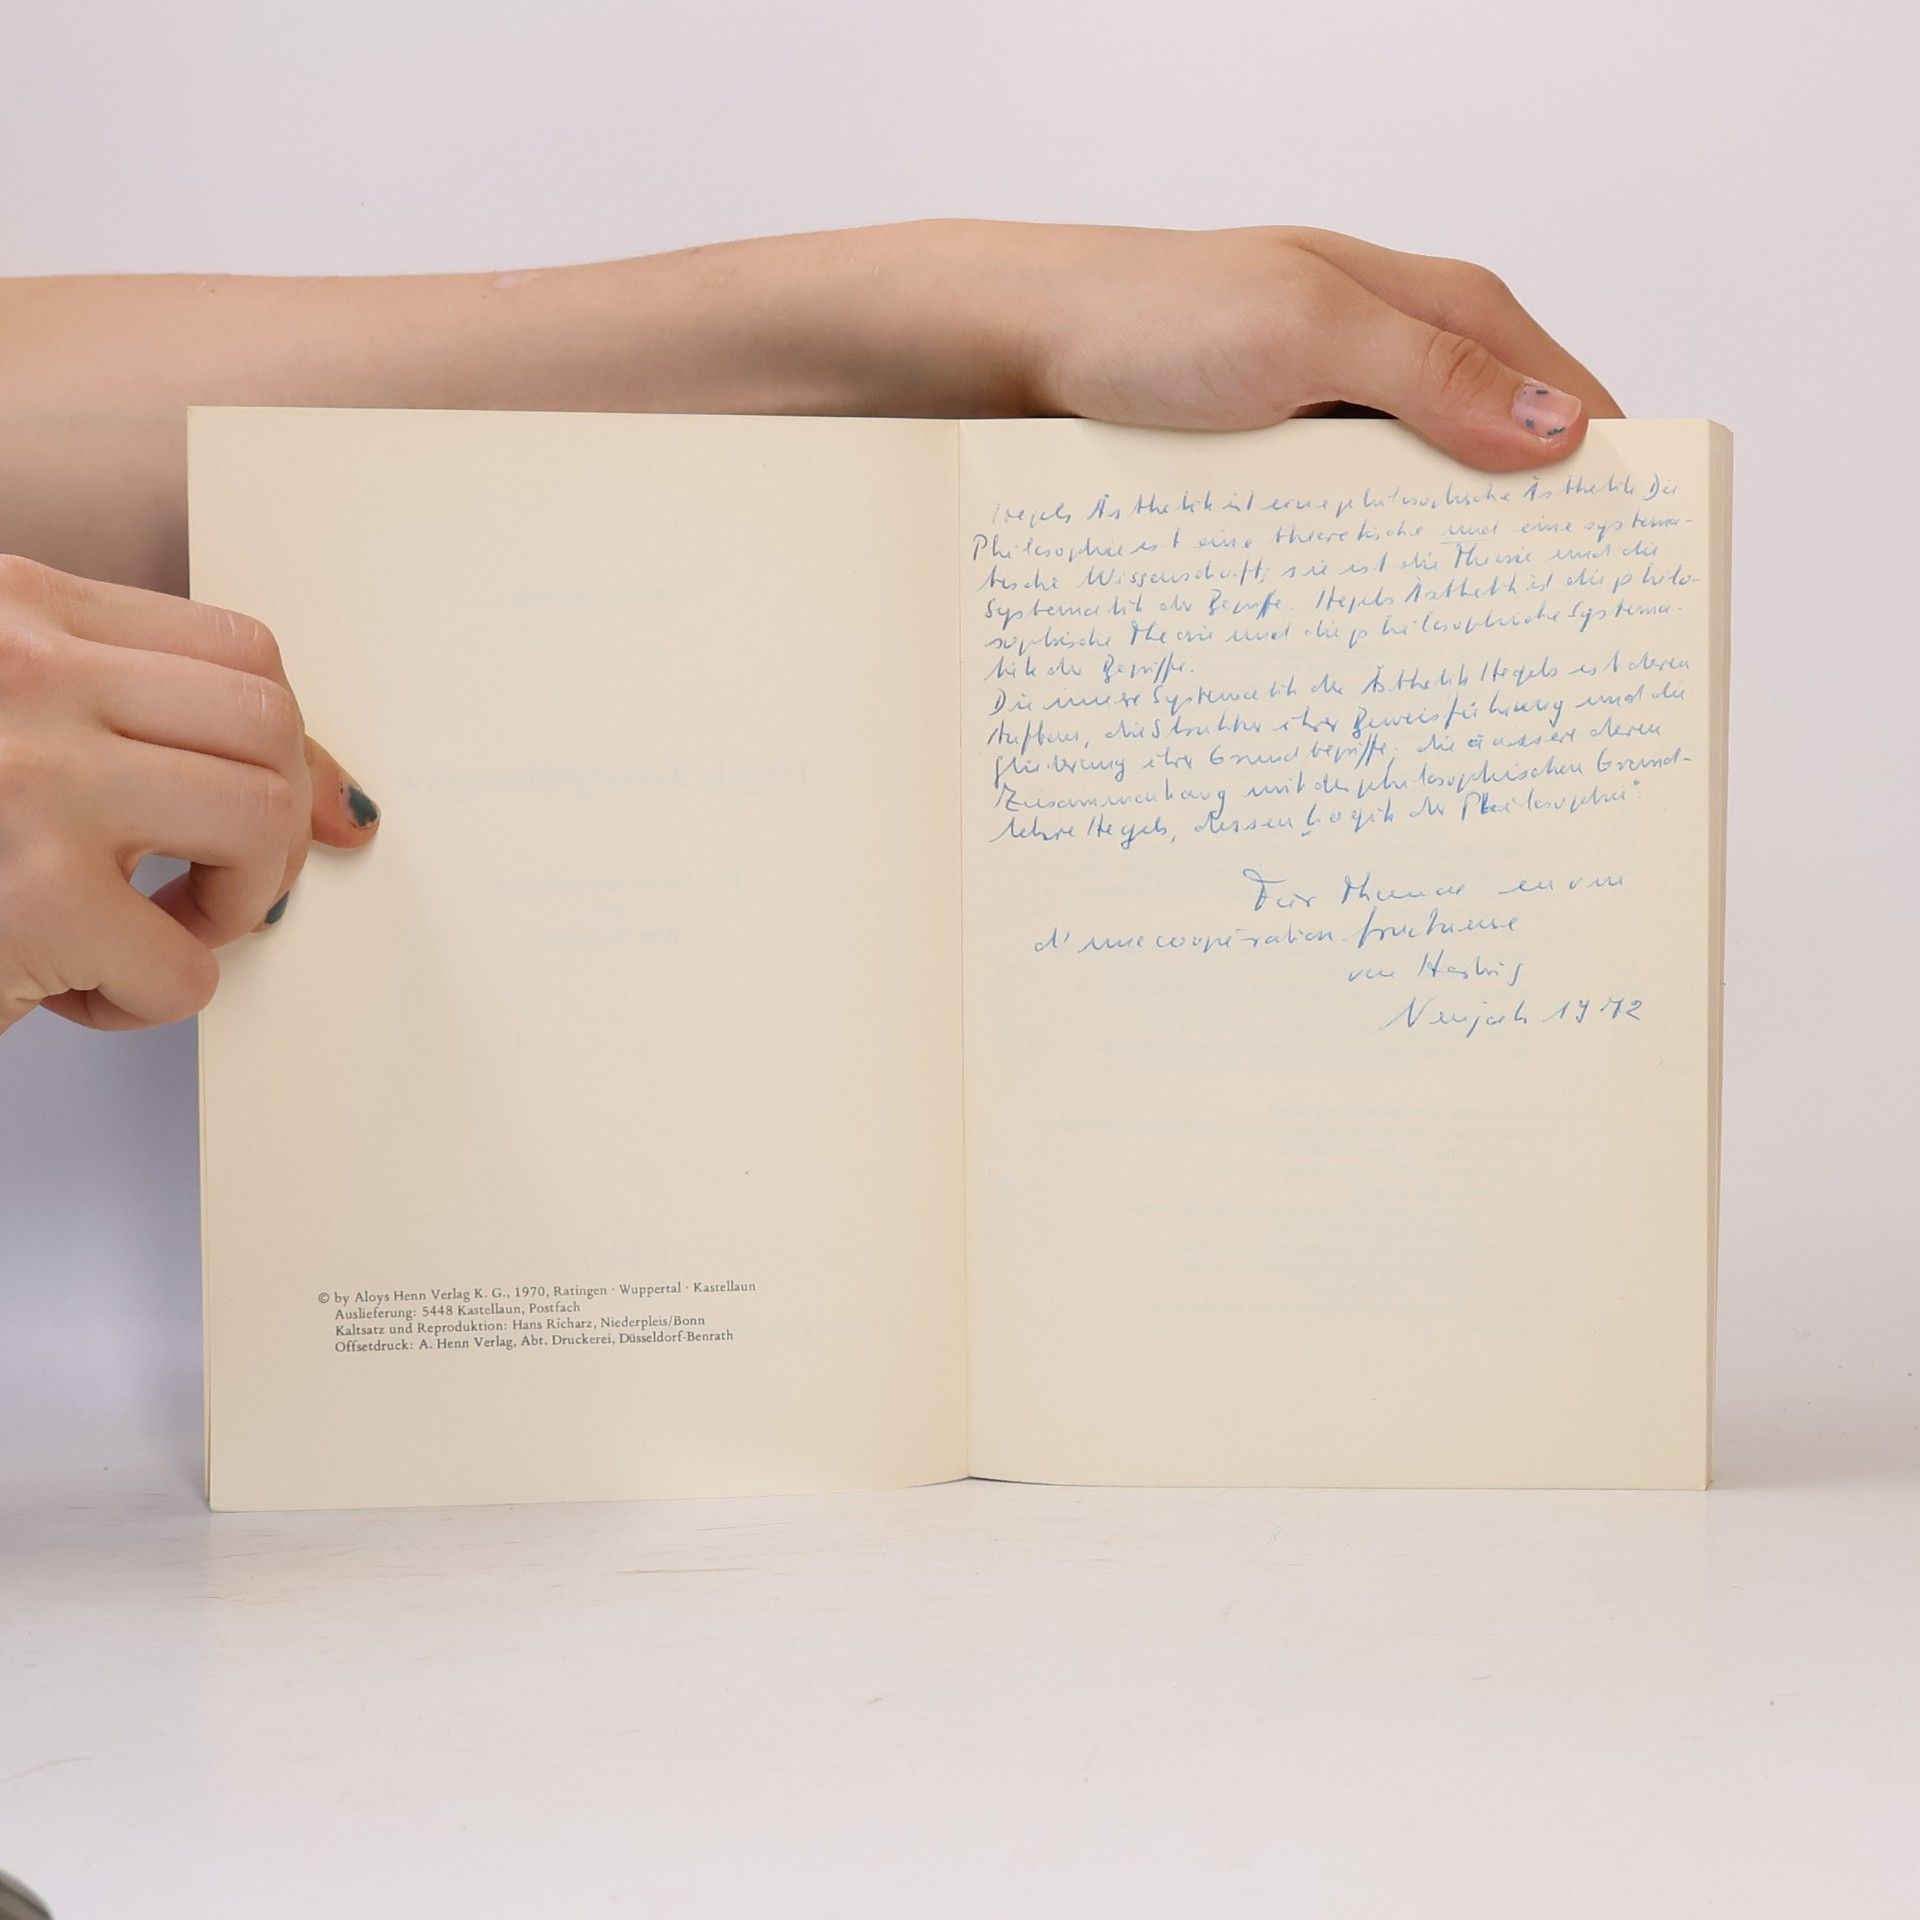 © by Aloys Henn Verlag K. G., 1970, Ratingen · Wuppertal · Kastellaun
Auslieferung: 5448 Kastellaun, Postfach
Kaltsatz und Reproduktion: Hans Richarz, Niederpleis/Bonn
Offsetdruck: A. Henn Verlag, Abt. Druckerei, Düsseldorf-Benrath
Hegels Ästhetik ist eine philosophische Ästhetik Die
Philosophie ist eine theoretische und eine systema-
tische Wissenschaft; sie ist die Theorie und die
Systematik der Begriffe. Hegels Ästhetik ist die philo-
sophische Theorie und die philosophische Systema-
tik der Begriffe.
Die innere Systematik der Ästhetik Hegels ist deren
Aufbau, die Struktur ihrer Beweisführung und die
Gliederung ihrer Grundbegriffe; die äussere deren
Zusammenhang mit der philosophischen Grund-
lehre Hegels, dessen „Logik der Philosophie".
Für en vue
d'une coopération fructueuse
von Hartwig
Neujahr 1972